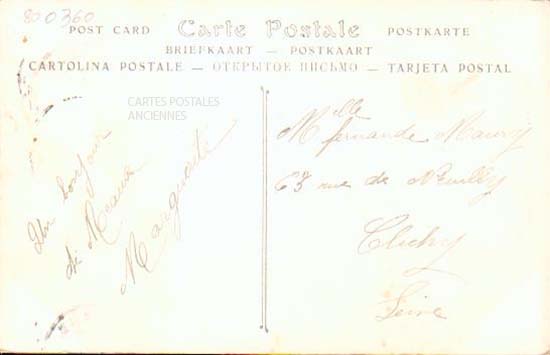 800360
POST CARD Carte Postale POSTKARTE
BRIEFKAART — POSTKAART
CARTOLINA POSTALE — ОТКРЫТОЕ ПИСЬМО — TARJETA POSTAL
CARTES POSTALES
ANCIENNES
Un bonjour
de Meaux
Marguerite
Mlle Fernande Maury
63 rue de Neuilly
Clichy
Seine